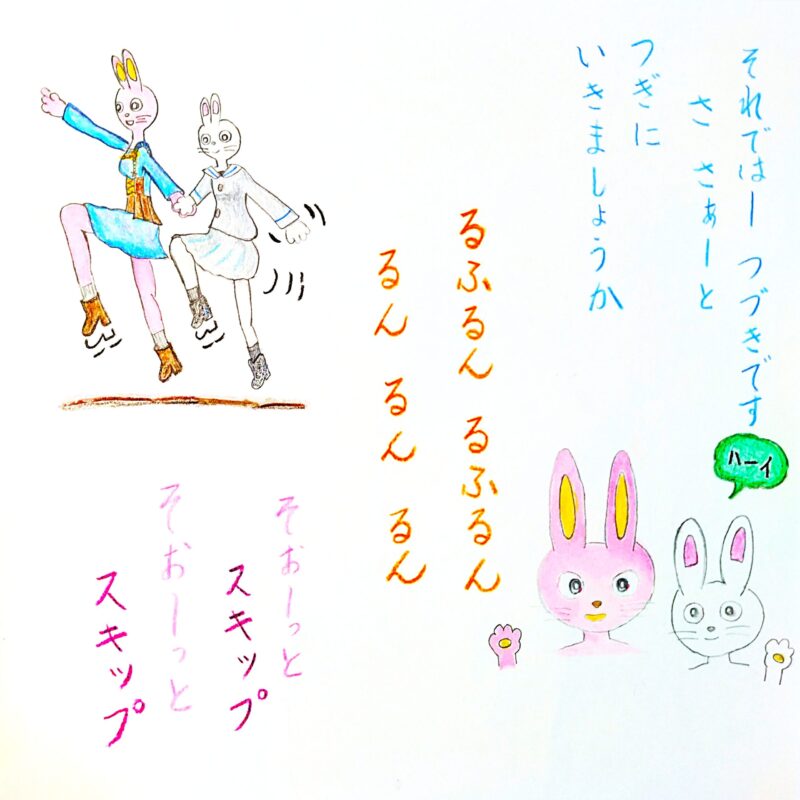 それではー つづきです
さ さぁーと
つぎに
いきましょうか
ハーイ
るふるん るふるん
るん るん るん
そおーっと
スキップ
そおーっと
スキップ